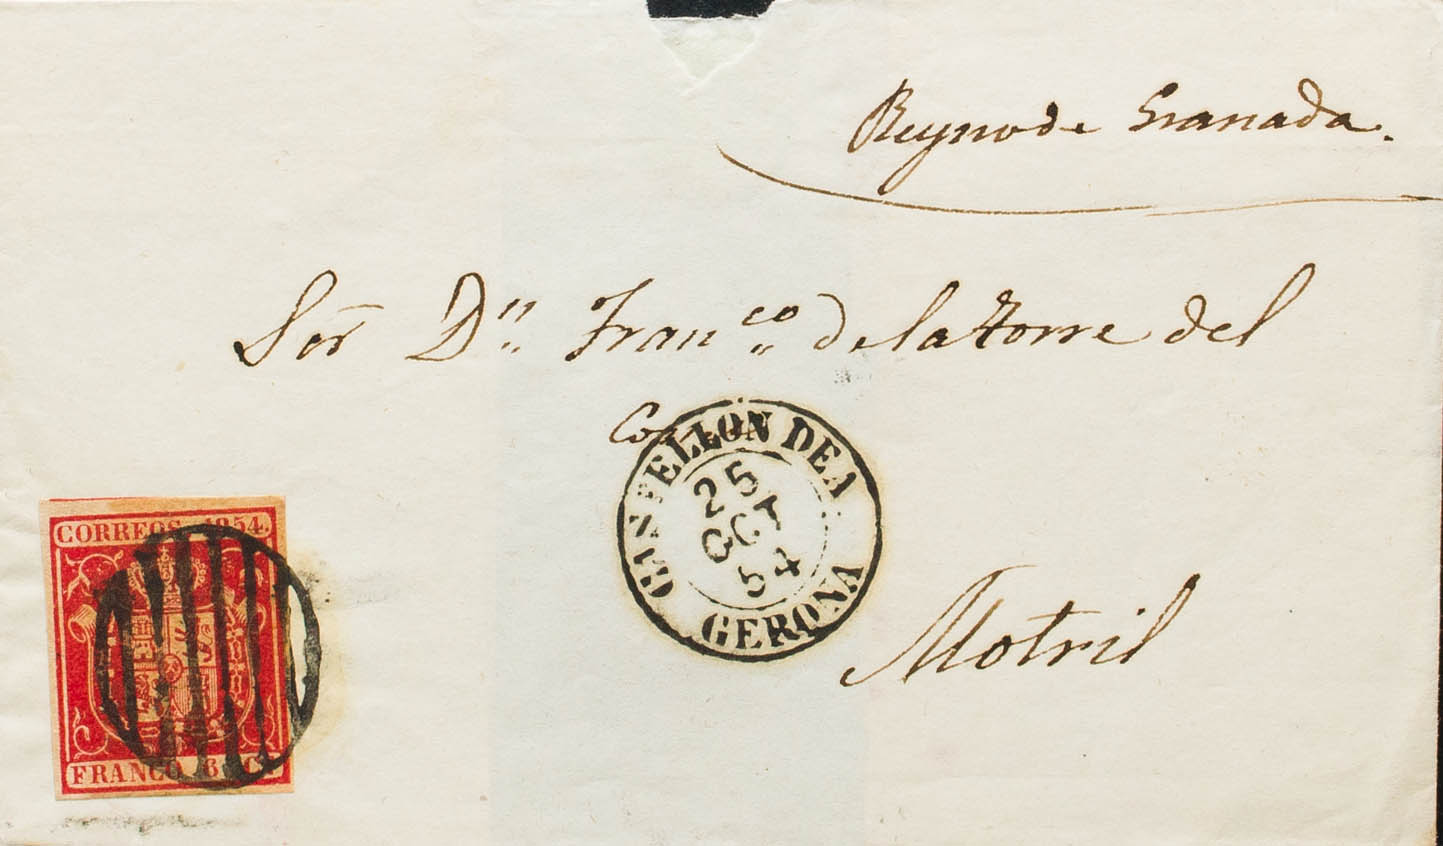 Reyno de Granada.
Sor Dn. Franco. de la Torre del
CASTELLON DE A.
25
OCT
54
GERONA
CORREOS 1854.
Motril
FRANCO 6 Cs